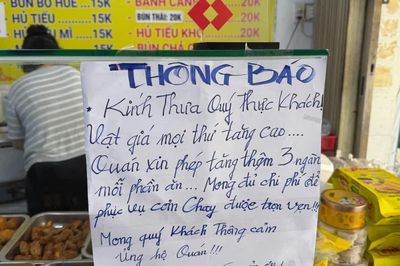 BÚN BÒ HUẾ ...15K
HỦ TIẾU ...... 15K
HỦ TIẾU MÌ ... 15K
BÁNH CANH ... 20K
BÚN THÁI: 20K
HỦ TIẾU KHO
BÚN CHẢ
THÔNG BÁO
* Kính Thưa Quý Thực Khách!
Vật giá mọi thứ tăng cao....
Quán xin phép tăng thêm 3 ngàn
mỗi phần ăn... Mong đủ chi phí để
phục vụ cơm Chay được trọn vẹn!!!
Mong quý Khách Thông cảm
ủng hộ Quán!!!